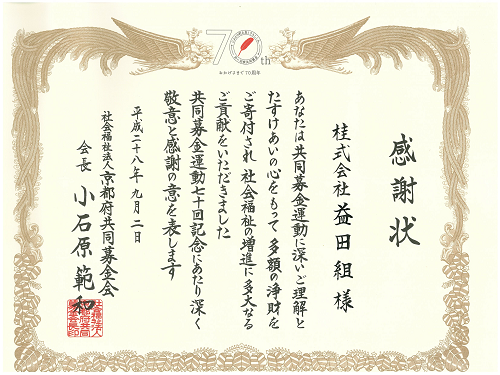 70th
おかげさまで70周年
感謝状
桂式会社 益田組 様
あなたは共同募金運動に深いご理解と
たすけあいの心をもって多額の浄財を
ご寄付され 社会福祉の増進に多大なる
ご貢献をいただきました
共同募金運動七十回記念にあたり深く
敬意と感謝の意を表します
平成二十八年九月二日
社会福祉法人 京都府共同募金会
会長 小石原範和